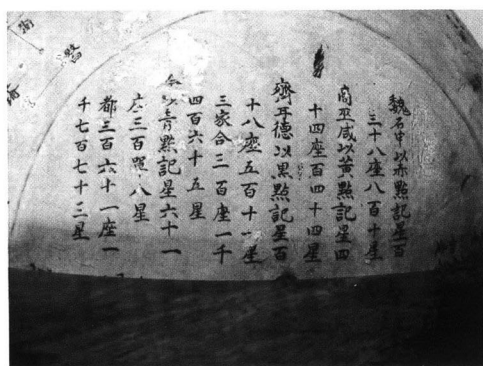 魏石申以赤點記星百
三十八座八百十星
商巫咸以黃點記星四
十四座百四十四星
齊甘德以黑點記星百
十八座五百十一星
三家合三百座一千
四百六十五星
今以青點記星六十一
座三百單八星
都三百六十一座一
千七百七十三星